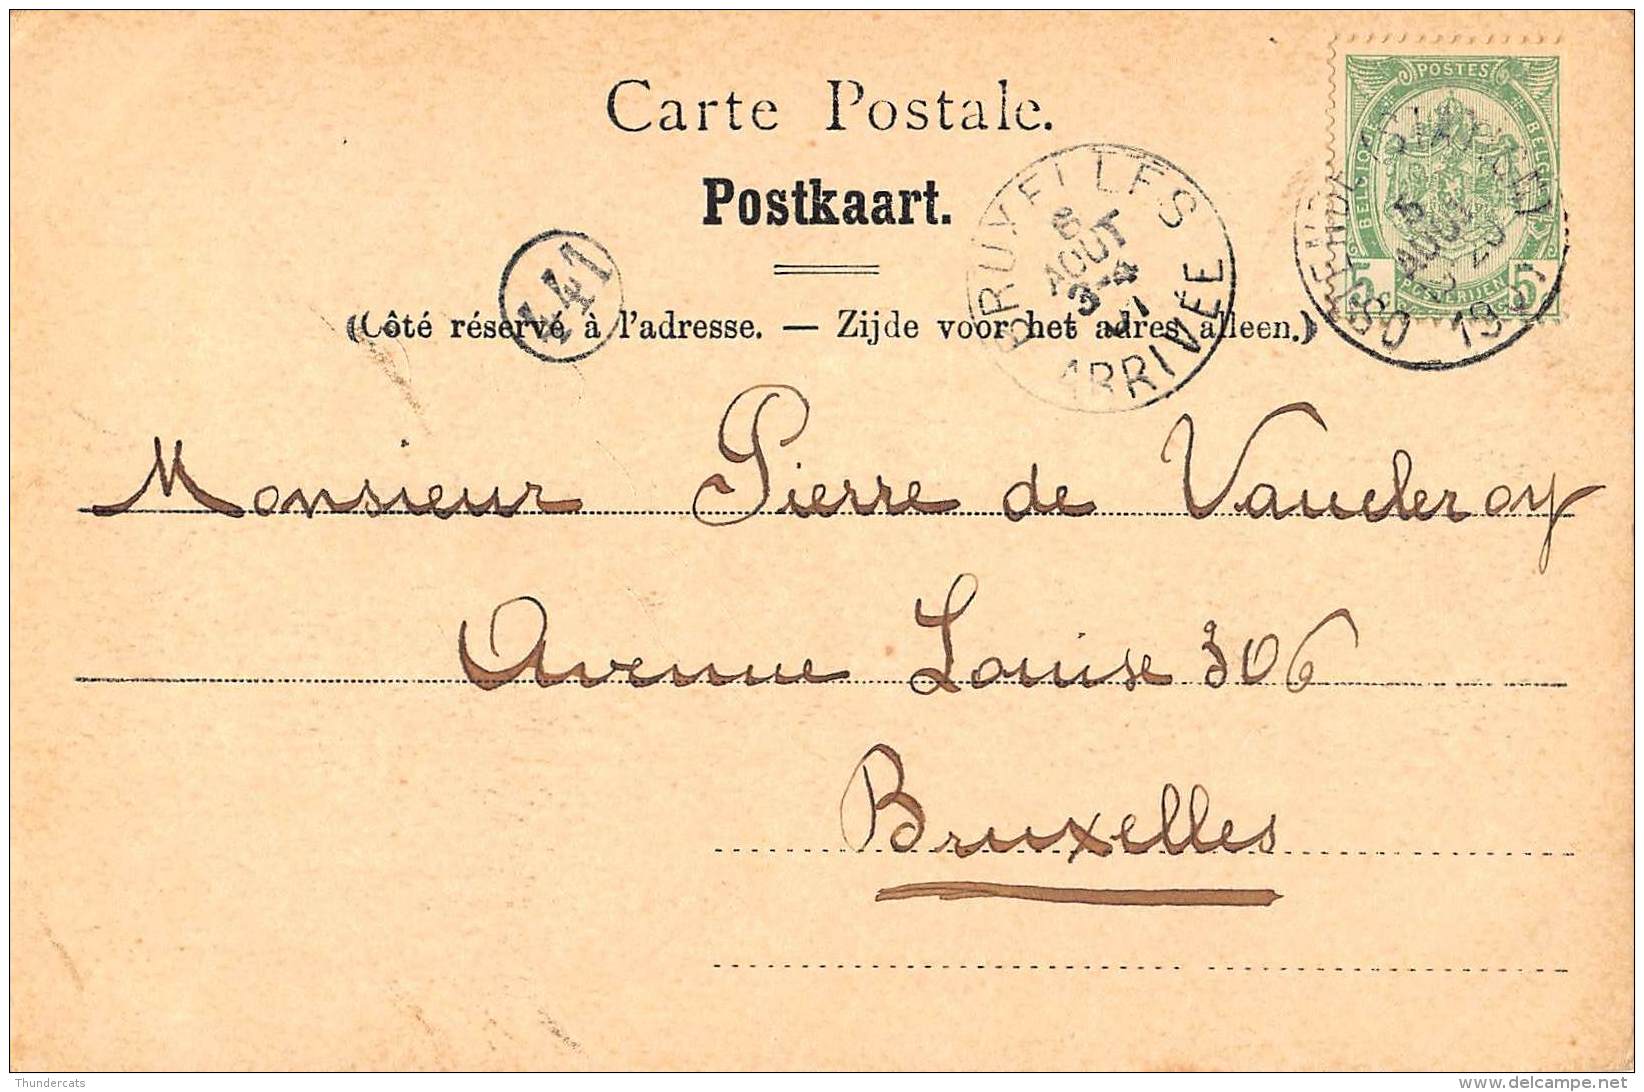 Carte Postale.
Postkaart.
(Côté réservé à l'adresse. — Zijde voor het adres alleen.)
441
BRUXELLES
6
AOUT
3-4
ARRIVÉE
POSTES
BELGIQUE
BELGIË
POSTERIJEN
5c
5c
5
AOUT
Monsieur Pierre de Vaucleroy
Avenue Louise 306
Bruxelles
Thundercats
www.delcampe.net